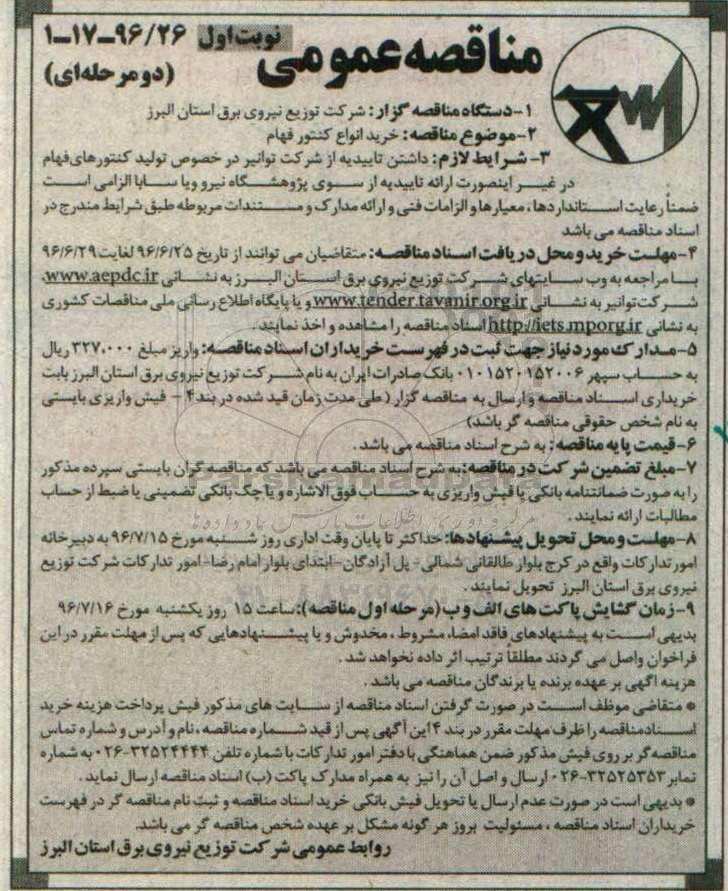 مناقصه عمومی نوبت اول ۹۶/۲۶-۱۷-۱
(دو مرحله‌ای)
۱-دستگاه مناقصه گزار: شرکت توزیع نیروی برق استان البرز
۲-موضوع مناقصه: خرید انواع کنتور فهام
۳- شرایط لازم: داشتن تاییدیه از شرکت توانیر در خصوص تولید کنتورهای فهام
در غیر اینصورت ارائه تاییدیه از سوی پژوهشگاه نیرو ویا سابا الزامی است
ضمناً رعایت استانداردها، معیارها و الزامات فنی و ارائه مدارک و مستندات مربوطه طبق شرایط مندرج در
اسناد مناقصه می باشد
۴-مهلت خرید و محل دریافت اسناد مناقصه: متقاضیان می توانند از تاریخ ۹۶/۶/۲۵ لغایت ۹۶/۶/۲۹
با مراجعه به وب سایتهای شرکت توزیع نیروی برق استان البرز به نشانی www.aepdc.ir،
شرکت توانیر به نشانی www.tender.tavanir.org.ir و یا پایگاه اطلاع رسانی ملی مناقصات کشوری
به نشانی http://iets.mporg.ir اسناد مناقصه را مشاهده و اخذ نمایند.
۵-مدارک مورد نیاز جهت ثبت در فهرست خریداران اسناد مناقصه: واریز مبلغ ۳۲۷،۰۰۰ ریال
به حساب سپهر ۰۱۰۱۵۲۰۱۵۲۰۰۶ بانک صادرات ایران به نام شرکت توزیع نیروی برق استان البرز بابت
خریداری اسناد مناقصه و ارسال به مناقصه گزار (طی مدت زمان قید شده در بند۴ - فیش واریزی بایستی
به نام شخص حقوقی مناقصه گر باشد)
۶-قیمت پایه مناقصه: به شرح اسناد مناقصه می باشد .
۷-مبلغ تضمین شرکت در مناقصه: به شرح اسناد مناقصه می باشد که مناقصه گران بایستی سپرده مذکور
را به صورت ضمانتنامه بانکی یا فیش واریزی به حساب فوق الاشاره و یا چک بانکی تضمینی یا ضبط از حساب
مطالبات ارائه نمایند .
۸-مهلت و محل تحویل پیشنهادها: حداکثر تا پایان وقت اداری روز شنبه مورخ ۹۶/۷/۱۵ به دبیرخانه
امور تدارکات واقع در کرج بلوار طالقانی شمالی- پل آزادگان- ابتدای بلوار امام رضا- امور تدارکات شرکت توزیع
نیروی برق استان البرز تحویل نمایند .
۹-زمان گشایش پاکت های الف و ب (مرحله اول مناقصه): ساعت ۱۵ روز یکشنبه مورخ ۹۶/۷/۱۶
بدیهی است به پیشنهادهای فاقد امضا، مشروط ، مخدوش و یا پیشنهادهایی که پس از مهلت مقرر در این
فراخوان واصل می گردند مطلقاً ترتیب اثر داده نخواهد شد .
هزینه آگهی بر عهده برنده یا برندگان مناقصه می باشد .
* متقاضی موظف است در صورت گرفتن اسناد مناقصه از سایت های مذکور فیش پرداخت هزینه خرید
اسناد مناقصه را ظرف مهلت مقرر در بند ۴ این آگهی پس از قید شماره مناقصه ،نام و آدرس و شماره تماس
مناقصه گر بر روی فیش مذکور ضمن هماهنگی با دفتر امور تدارکات با شماره تلفن ۳۲۵۲۴۴۴۴-۰۲۶ به شماره
نمابر ۳۲۵۲۵۳۵۳-۰۲۶ ارسال و اصل آن را نیز به همراه مدارک پاکت (ب) اسناد مناقصه ارسال نماید.
* بدیهی است در صورت عدم ارسال یا تحویل فیش بانکی خرید اسناد مناقصه و ثبت نام مناقصه گر در فهرست
خریداران اسناد مناقصه ، مسئولیت بروز هر گونه مشکل بر عهده شخص مناقصه گر می باشد.
روابط عمومی شرکت توزیع نیروی برق استان البرز